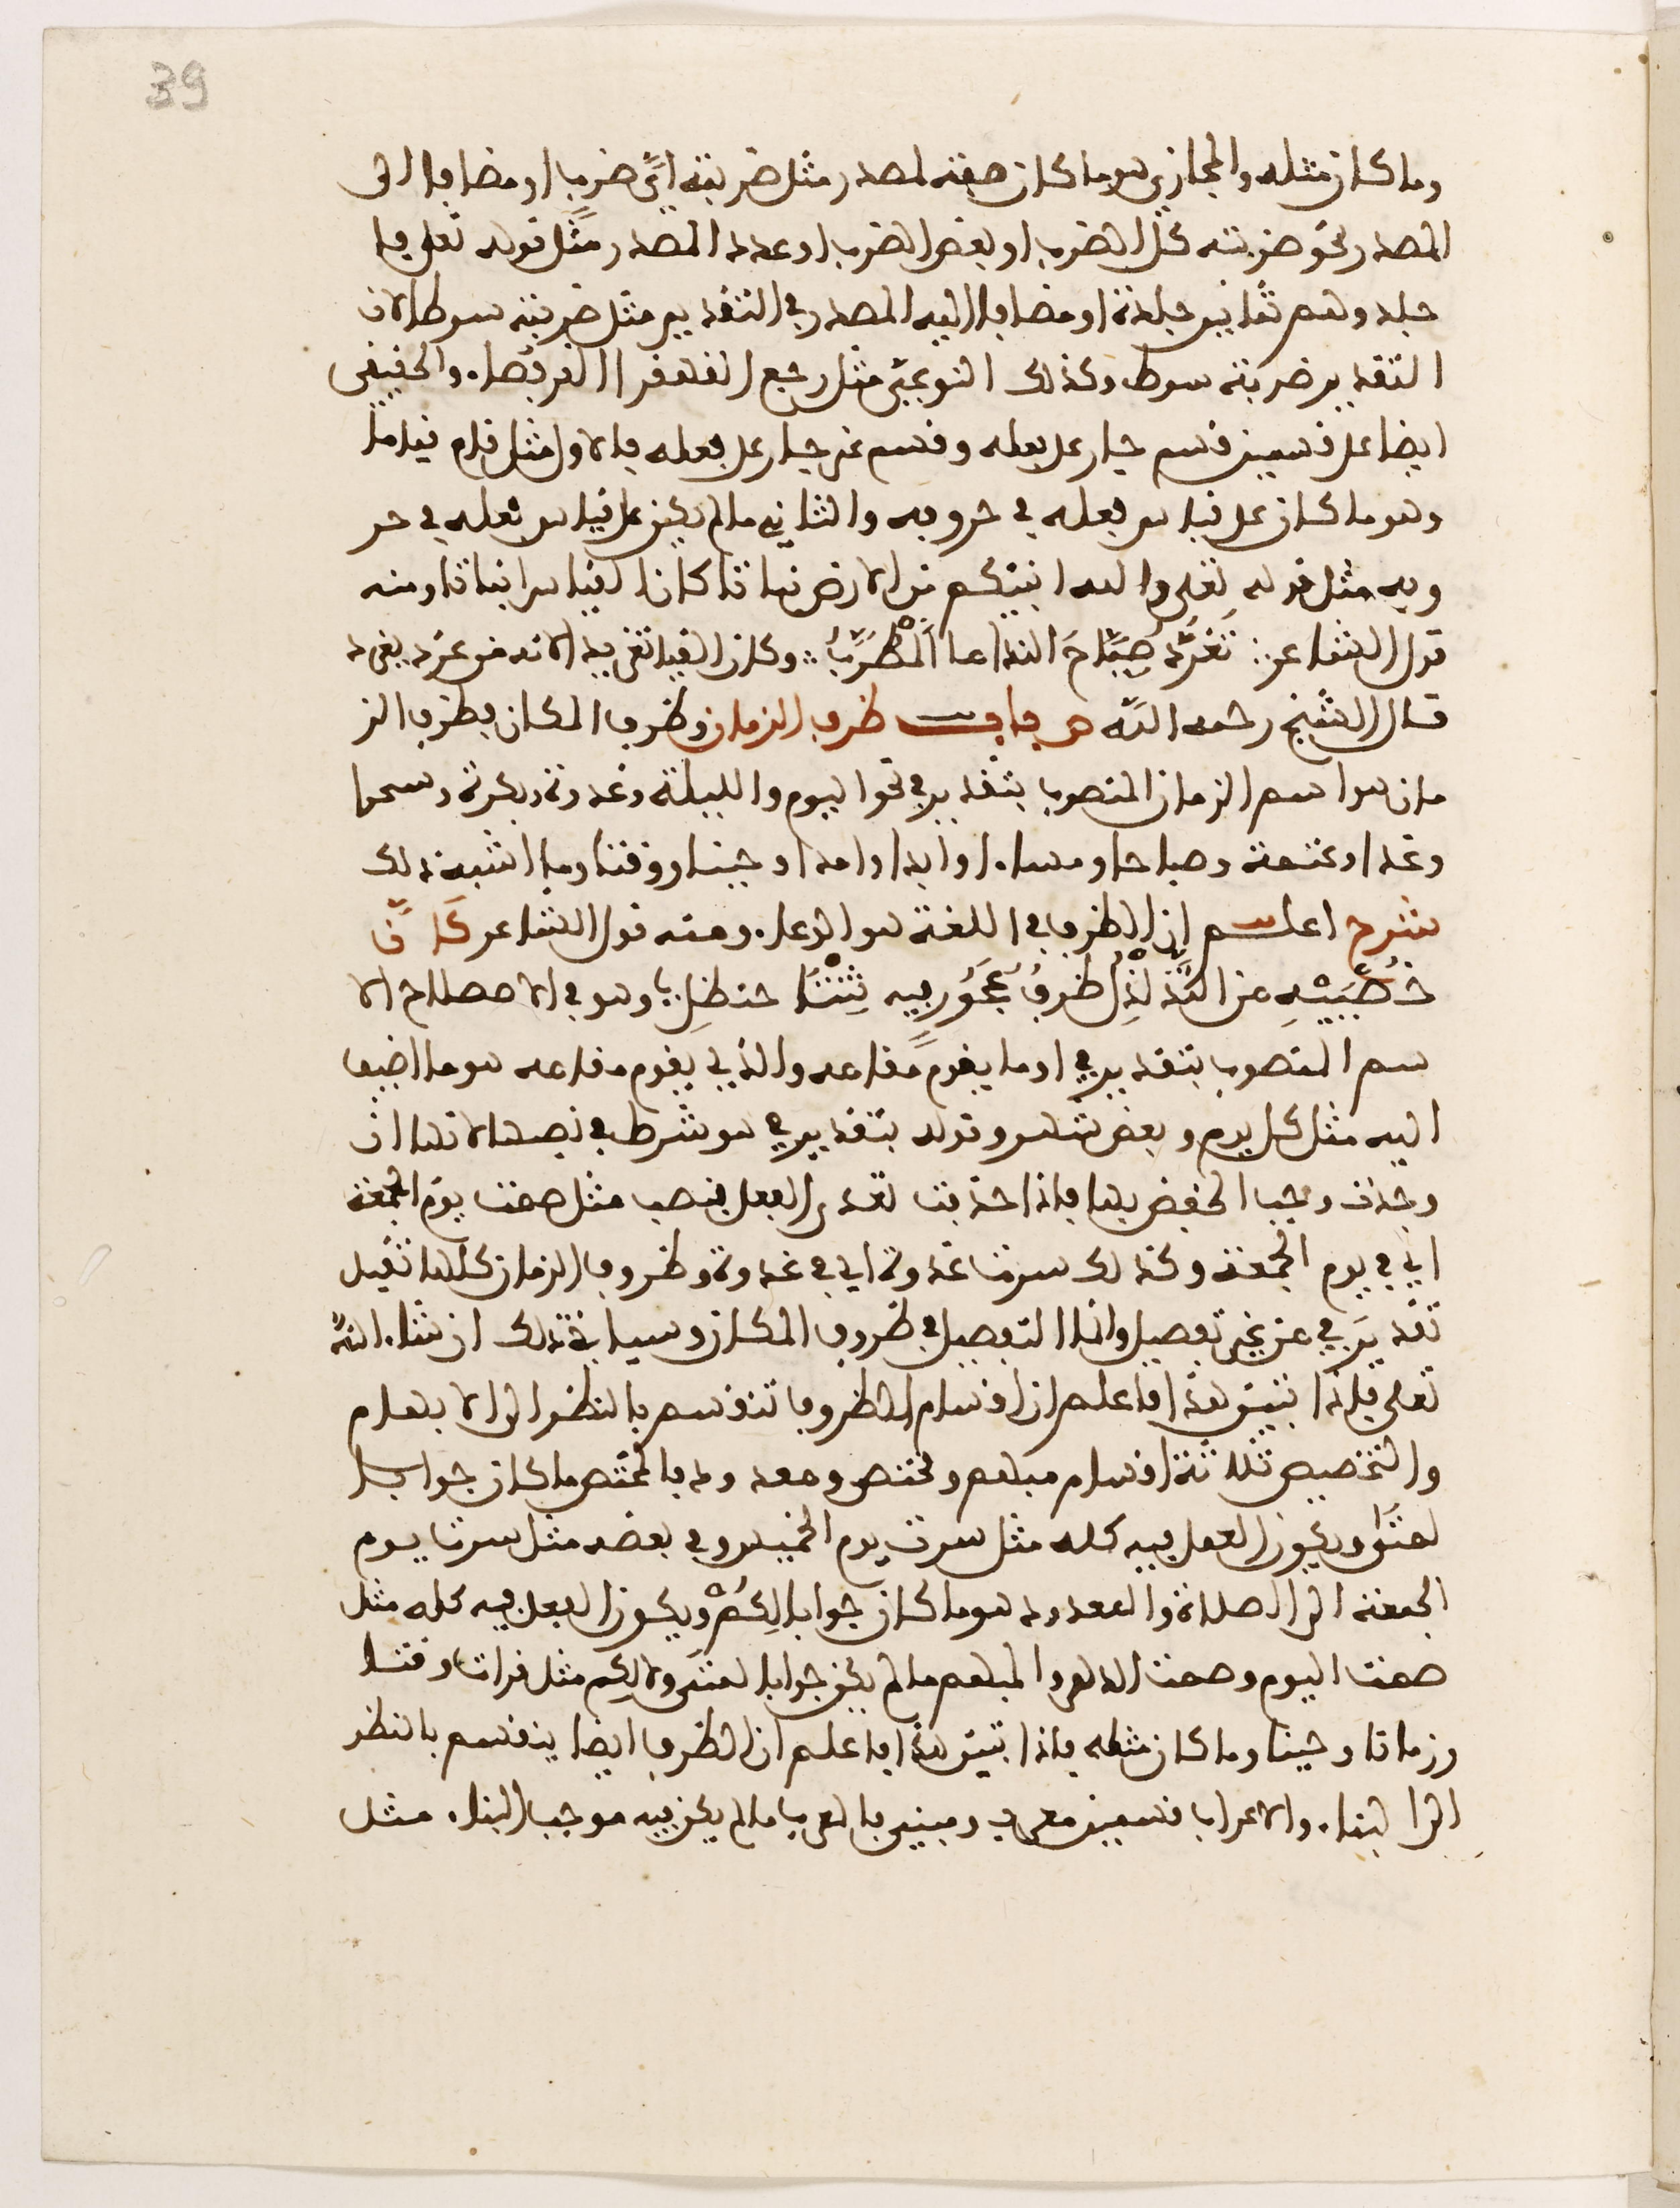 39
وما كان مثله والمجازي هو ما كان صفة لمصدر مثل ضربته اي ضرب او مضافا الى
المصدر نحو ضربته كل الضرب او بعض الضرب او عدد المصدر مثل قوله تعلى فا
جلدوهم ثمانين جلدة او مضافا اليه المصدر في التقدير مثل ضربته سوطا لان
التقدير ضربة سوط وكذلك النوعي مثل رجع القهقرا القرفصاء والحقيقي
ايضا على قسمين قسم جار على فعله وقسم غير جار على فعله فالاول مثل قام قياما
وهو ما كان على قياس فعله في حروفه والثاني ما لم يكن على قياس فعله في حر
وفه مثل قوله تعلى والله انبتكم من الارض نباتا كان القياس انباتا ومنه
قول الشاعر تغرد صياح الندامى المطرب وكان القيا تغريد لانه من غرد يغرد
قال الشيخ رحمه الله باب ظرف الزمان وظرف المكان فظرف الز
مان هو اسم الزمان المنصوب بتقدير في نحو اليوم والليلة وغدوة وبكرة وسحرا
وغدا وعتمة وصباحا ومساء وابدا وامدا وحينا ووقتا وما اشبه ذلك
شرح اعلم ان الظرف في اللغة هو الوعاء ومنه قول الشاعر كان
خصييه من التدلدل ظرف عجوز فيه ثنتا حنظل وهو في الاصطلاح الا
سم المنصوب بتقدير في او ما يقوم مقامه والذي يقوم مقامه هو ما اضيف
اليه مثل كل يوم وبعض شهر وقوله بتقدير في هو شرط في نصبها لانها ان
وجدت وجب الخفض بها فاذا حذفت تعدى الفعل فنصب مثل صمت يوم الجمعة
اي في يوم الجمعة وكذلك سرت غدوة اي في غدوة وظروف الزمان كلها تقبل
تقدير في من غير تفصيل وانما التفصيل في ظروف المكان وسياتي ذلك ان شاء الله
تعلى فاذا تبين هذا فاعلم ان اقسام الظروف تنقسم بالنظر الى الابهام
والتخصيص ثلاثة اقسام مبهم ومختص ومعدود فالمختص ما كان جوابا
لمتى ويكون العمل فيه كله مثل سرت يوم الخميس وفي بعضه مثل سرت يوم
الجمعة الى الصلاة والمعدود هو ما كان جوابا لكم ويكون الفعل فيه كله مثل
صمت اليوم وصمت الدهر والمبهم ما لم يكن جوابا لمتى ولا لكم مثل قرات وقتا
وزمانا وحينا وما كان مثله فاذا تبين هذا فاعلم ان الظرف ايضا ينقسم بالنظر
الى البناء والاعراب قسمين معرب ومبني فالمعرب ما لم يكن فيه موجب البناء مثل